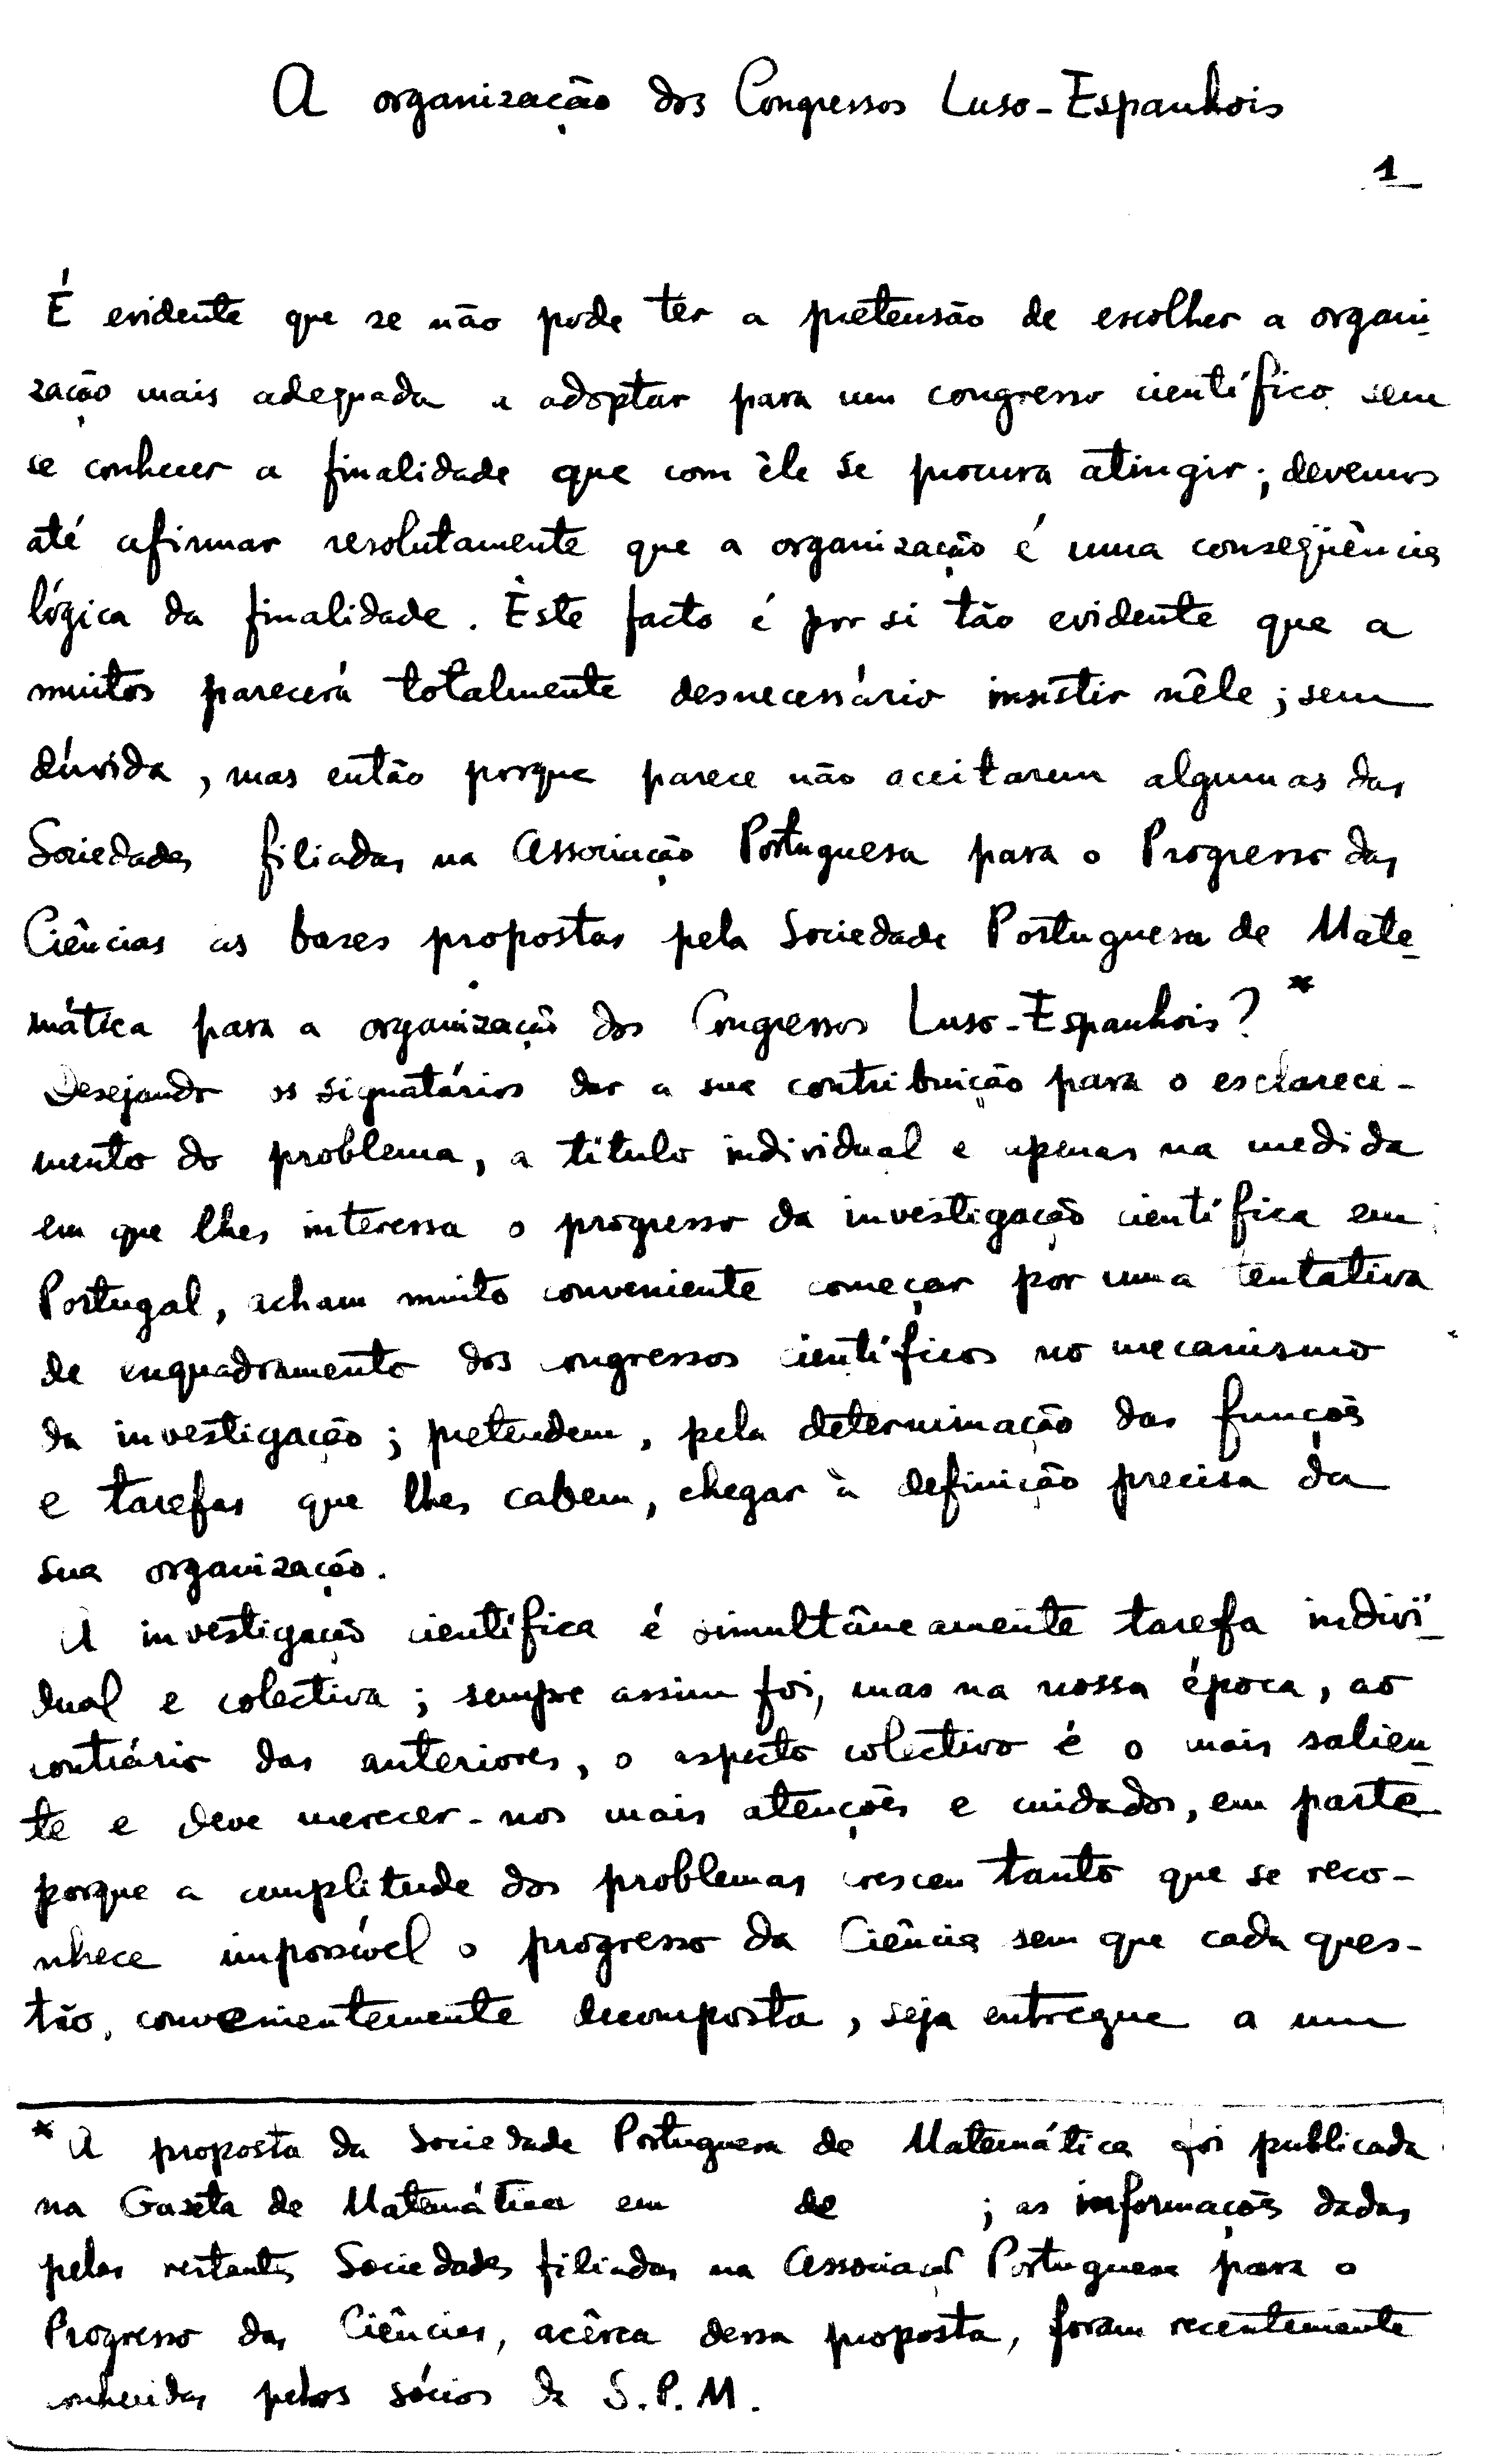 A organização dos Congressos Luso-Espanhois
1
É evidente que se não pode ter a pretensão de escolher a organi-
zação mais adequada a adoptar para um congresso científico sem
se conhecer a finalidade que com êle se procura atingir; devemos
até afirmar resolutamente que a organização é uma conseqüência
lógica da finalidade. Êste facto é por si tão evidente que a
muitos parecerá totalmente desnecessário insistir nêle; sem
dúvida, mas então porque parece não aceitarem algumas das
Sociedades filiadas na Associação Portuguesa para o Progresso das
Ciências as bases propostas pela Sociedade Portuguesa de Mate-
mática para a organização dos Congressos Luso-Espanhois? *
Desejando os signatários dar a sua contribuição para o esclareci-
mento do problema, a título individual e apenas na medida
em que lhes interessa o progresso da investigação científica em
Portugal, acham muito conveniente começar por uma tentativa
de enquadramento dos congressos científicos no mecanismo
da investigação; pretendem, pela determinação das funções
e tarefas que lhes cabem, chegar à definição precisa da
sua organização.
A investigação científica é simultâneamente tarefa indivi-
dual e colectiva; sempre assim foi, mas na nossa época, ao
contrário das anteriores, o aspecto colectivo é o mais salien-
te e deve merecer-nos mais atenções e cuidados, em parte
porque a amplitude dos problemas cresceu tanto que se reco-
nhece impossível o progresso da Ciência sem que cada ques-
tão, convenientemente decomposta, seja entregue a um
* A proposta da Sociedade Portuguesa de Matemática foi publicada
na Gazeta de Matemática em de ; as informações dadas
pelas restantes Sociedades filiadas na Associação Portuguesa para o
Progresso das Ciências, acêrca dessa proposta, foram recentemente
conhecidas pelos sócios da S.P.M.